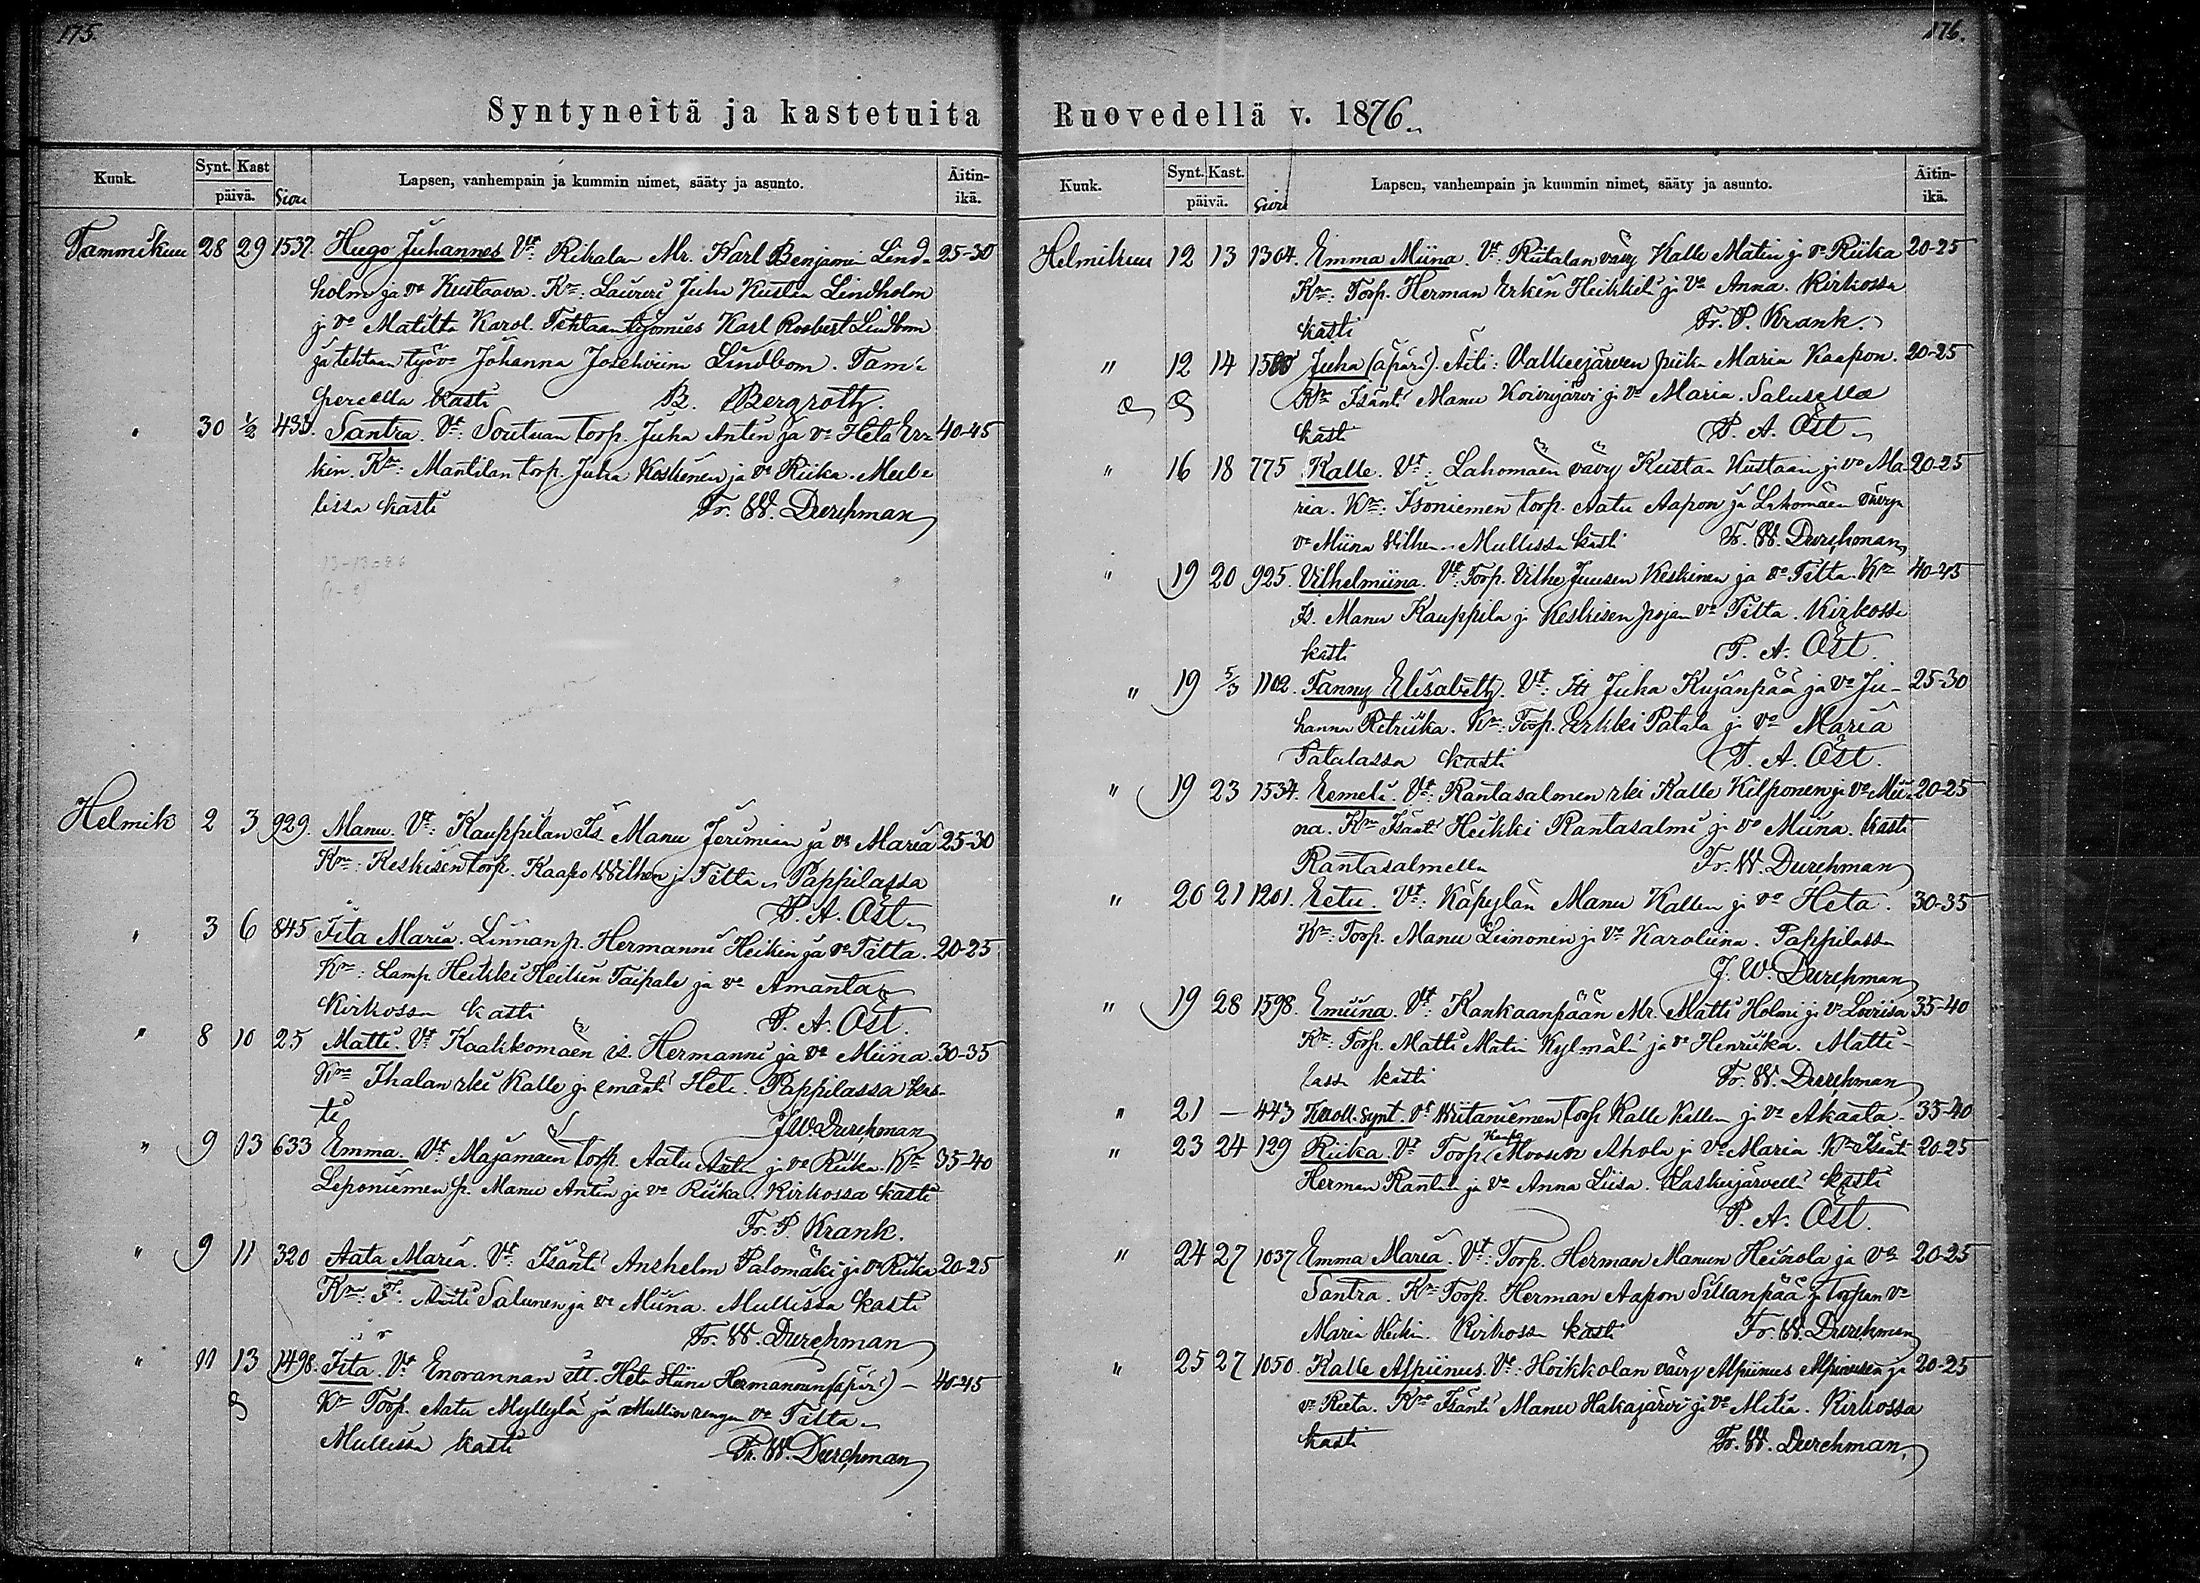 175.
Syntyneitä ja kastetuita
Kuuk. Synt. Kast päivä. Sivu Lapsen, vanhempain ja kummin nimet, sääty ja asunto. Äitin-ikä.
Tammikuu 28 29 1537. Hugo Juhannes Vt. Rihalan Mr. Karl Benjamin Lind- 25-30
holm ja vo Kustaava. Km: Laururi Juha Kustaa Lindholm
j vo Matilta Karol. Tehtaan työmies Karl Roobert Lindbom
ja tehtaan työv Johanna Josehviina Lindbom. Tam-
pereella kasti B. Bergroth.
" 30 1/2 433. Santra. Vt: Soutuan torp. Juha Antin ja vo Heta Er- 40-45
kin. Km: Mantilan torp. Juha Koskinen ja vo Riika. Mul-
lissa kasti Fr. W. Durchman
Helmik 2 3 929. Manu. Vt: Kauppilan Is. Manu Jerimian ja vo Maria 25-30
Km: Keskisen torp. Kaapo Wilhen j Titta. Pappilassa
P. A. Öst.
" 3 6 845 Iita Maria. Linnan p. Hermanni Heikin ja vo Titta. 20-25
Km: Lamp. Heikki Heikin Taipale ja vo Amanta
Kirkossa kasti P. A. Öst.
" 8 10 25 Matti. Vt Kaakkomäen is. Hermanni ja vo Miina. 30-35
Km Ihalan rki Kalle j emänt Heta. Pappilassa kas-
ti J W. Durchman
" 9 13 633 Emma. Vt. Majamäen torp. Aatu Antin j vo Riika. Km 35-40
Leponiemen p. Manu Antin ja vo Riika. Kirkossa kasti
Fr. P. Krank.
" 9 11 320 Aata Maria. Vt. Isäntä Anshelm Palomäki j vo Riika 20-25
Km: Antti Salunen ja vo Miina. Mullissa kasti
Fr. W. Durchman
" 11 13 1498. Iita. Vt Enorannan itt. Heta Stiina Hermannin (äpärä) - 40-45
Km Torp. Aatu Myllylä ja Mullin rengin vo Titta.
Mullissa kasti Fr. W. Durchman
176.
Ruovedellä v. 1876.
Kuuk. Synt. Kast. päivä. Sivu Lapsen, vanhempain ja kummin nimet, sääty ja asunto. Äitin-ikä.
Helmikuu 12 13 1304. Emma Miina. Vt. Riitalan vävy Kalle Matin j vo Riika 20-25
Km: Torp. Herman Erkin Heikkilä j vo Anna. Kirkossa
kasti Fr. P. Krank.
" 12 14 Juha (äpärä). Äiti: Valkeejärven piika Maria Kaapon. 20-25
Km Isänt Manu Koivujärvi j vo Maria. Salusella
kasti P. A. Öst.
" 16 18 775 Kalle. Vt: Lahomäen vävy Kustaa Kustaan j vo Ma- 20-25
ria. Km: Isoniemen torp. Aatu Aapon ja Lahomäen vävyn
vo Miina Wilhen. Mullissa kasti Fr. W. Durchman
" 19 20 925. Vilhelmiina. Vt. Torp. Vilhe Juusen Keskinen ja vo Titta. Km 40-45
Is. Manu Kauppila j Keskisen pojan vo Titta. Kirkossa
kasti P. A. Öst.
" 19 5/3 1102. Fanny Elisabeth. Vt: Itt Juha Kujanpää ja vo Ju- 25-30
hanna Retriika. Km: Torp. Erkki Patala j vo Maria
Patalassa kasti P. A. Öst.
" 19 23 1534. Eemeli. Vt: Rantasalmen rki Kalle Kilponen j vo Mii- 20-25
na. Km Isänt Heikki Rantasalmi j vo Miina. kasti
Rantasalmella Fr. W. Durchman
" 20 21 1201. Eetu. Vt: Käpylän Manu Kallen j vo Heta. 30-35
Km: Torp. Manu Leinonen j vo Karoliina. Pappilassa
J. W. Durchman
" 19 28 1598. Emiina. Vt: Kankaanpään Mr. Matti Holmi j vo Loviisa 35-40
Km: Torp. Matti Matin Kylmälä ja vo Henriika. Matti-
lassa kasti Fr. W. Durchman
" 21 - 443 Kuoll. synt. Vt Wiitaniemen torp Kalle Kallen j vo Akaata. 35-40
" 23 24 129 Riika. Vt Torp Moosen Ahola j vo Maria. Km Isänt 20-25
Herman Rantin ja vo Anna Liisa. Kaskujärvellä kasti
P. A. Öst.
" 24 27 1037 Emma Maria. Vt: Torp. Herman Manun Heinola ja vo 20-25
Santra. Km Torp. Herman Aapon Sillanpää j torpan vo
Maria Heikin. Kirkossa kasti Fr. W. Durchman
" 25 27 1050. Kalle Alpiinus. Vt: Hoikkolan vävy Alpiinus Alpiinuksen ja 20-25
vo Reeta. Km Isänt Manu Hakajärvi j vo Milia. Kirkossa
kasti Fr. W. Durchman